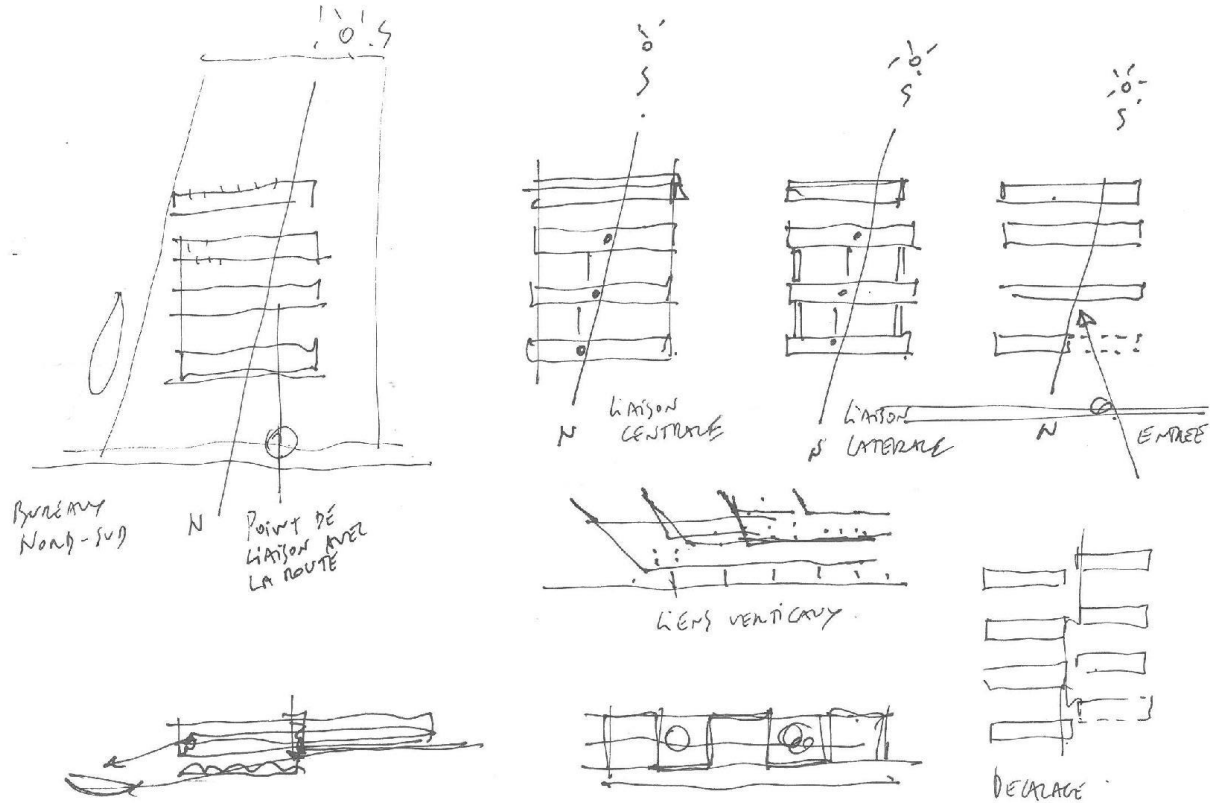 S
S
S
S
N
BUREAUX
NORD-SUD
POINT DE
LIAISON AVEC
LA ROUTE
N
LIAISON
CENTRALE
N
LIAISON
LATERALE
N
ENTREE
LIENS VERTICAUX
DECALAGE